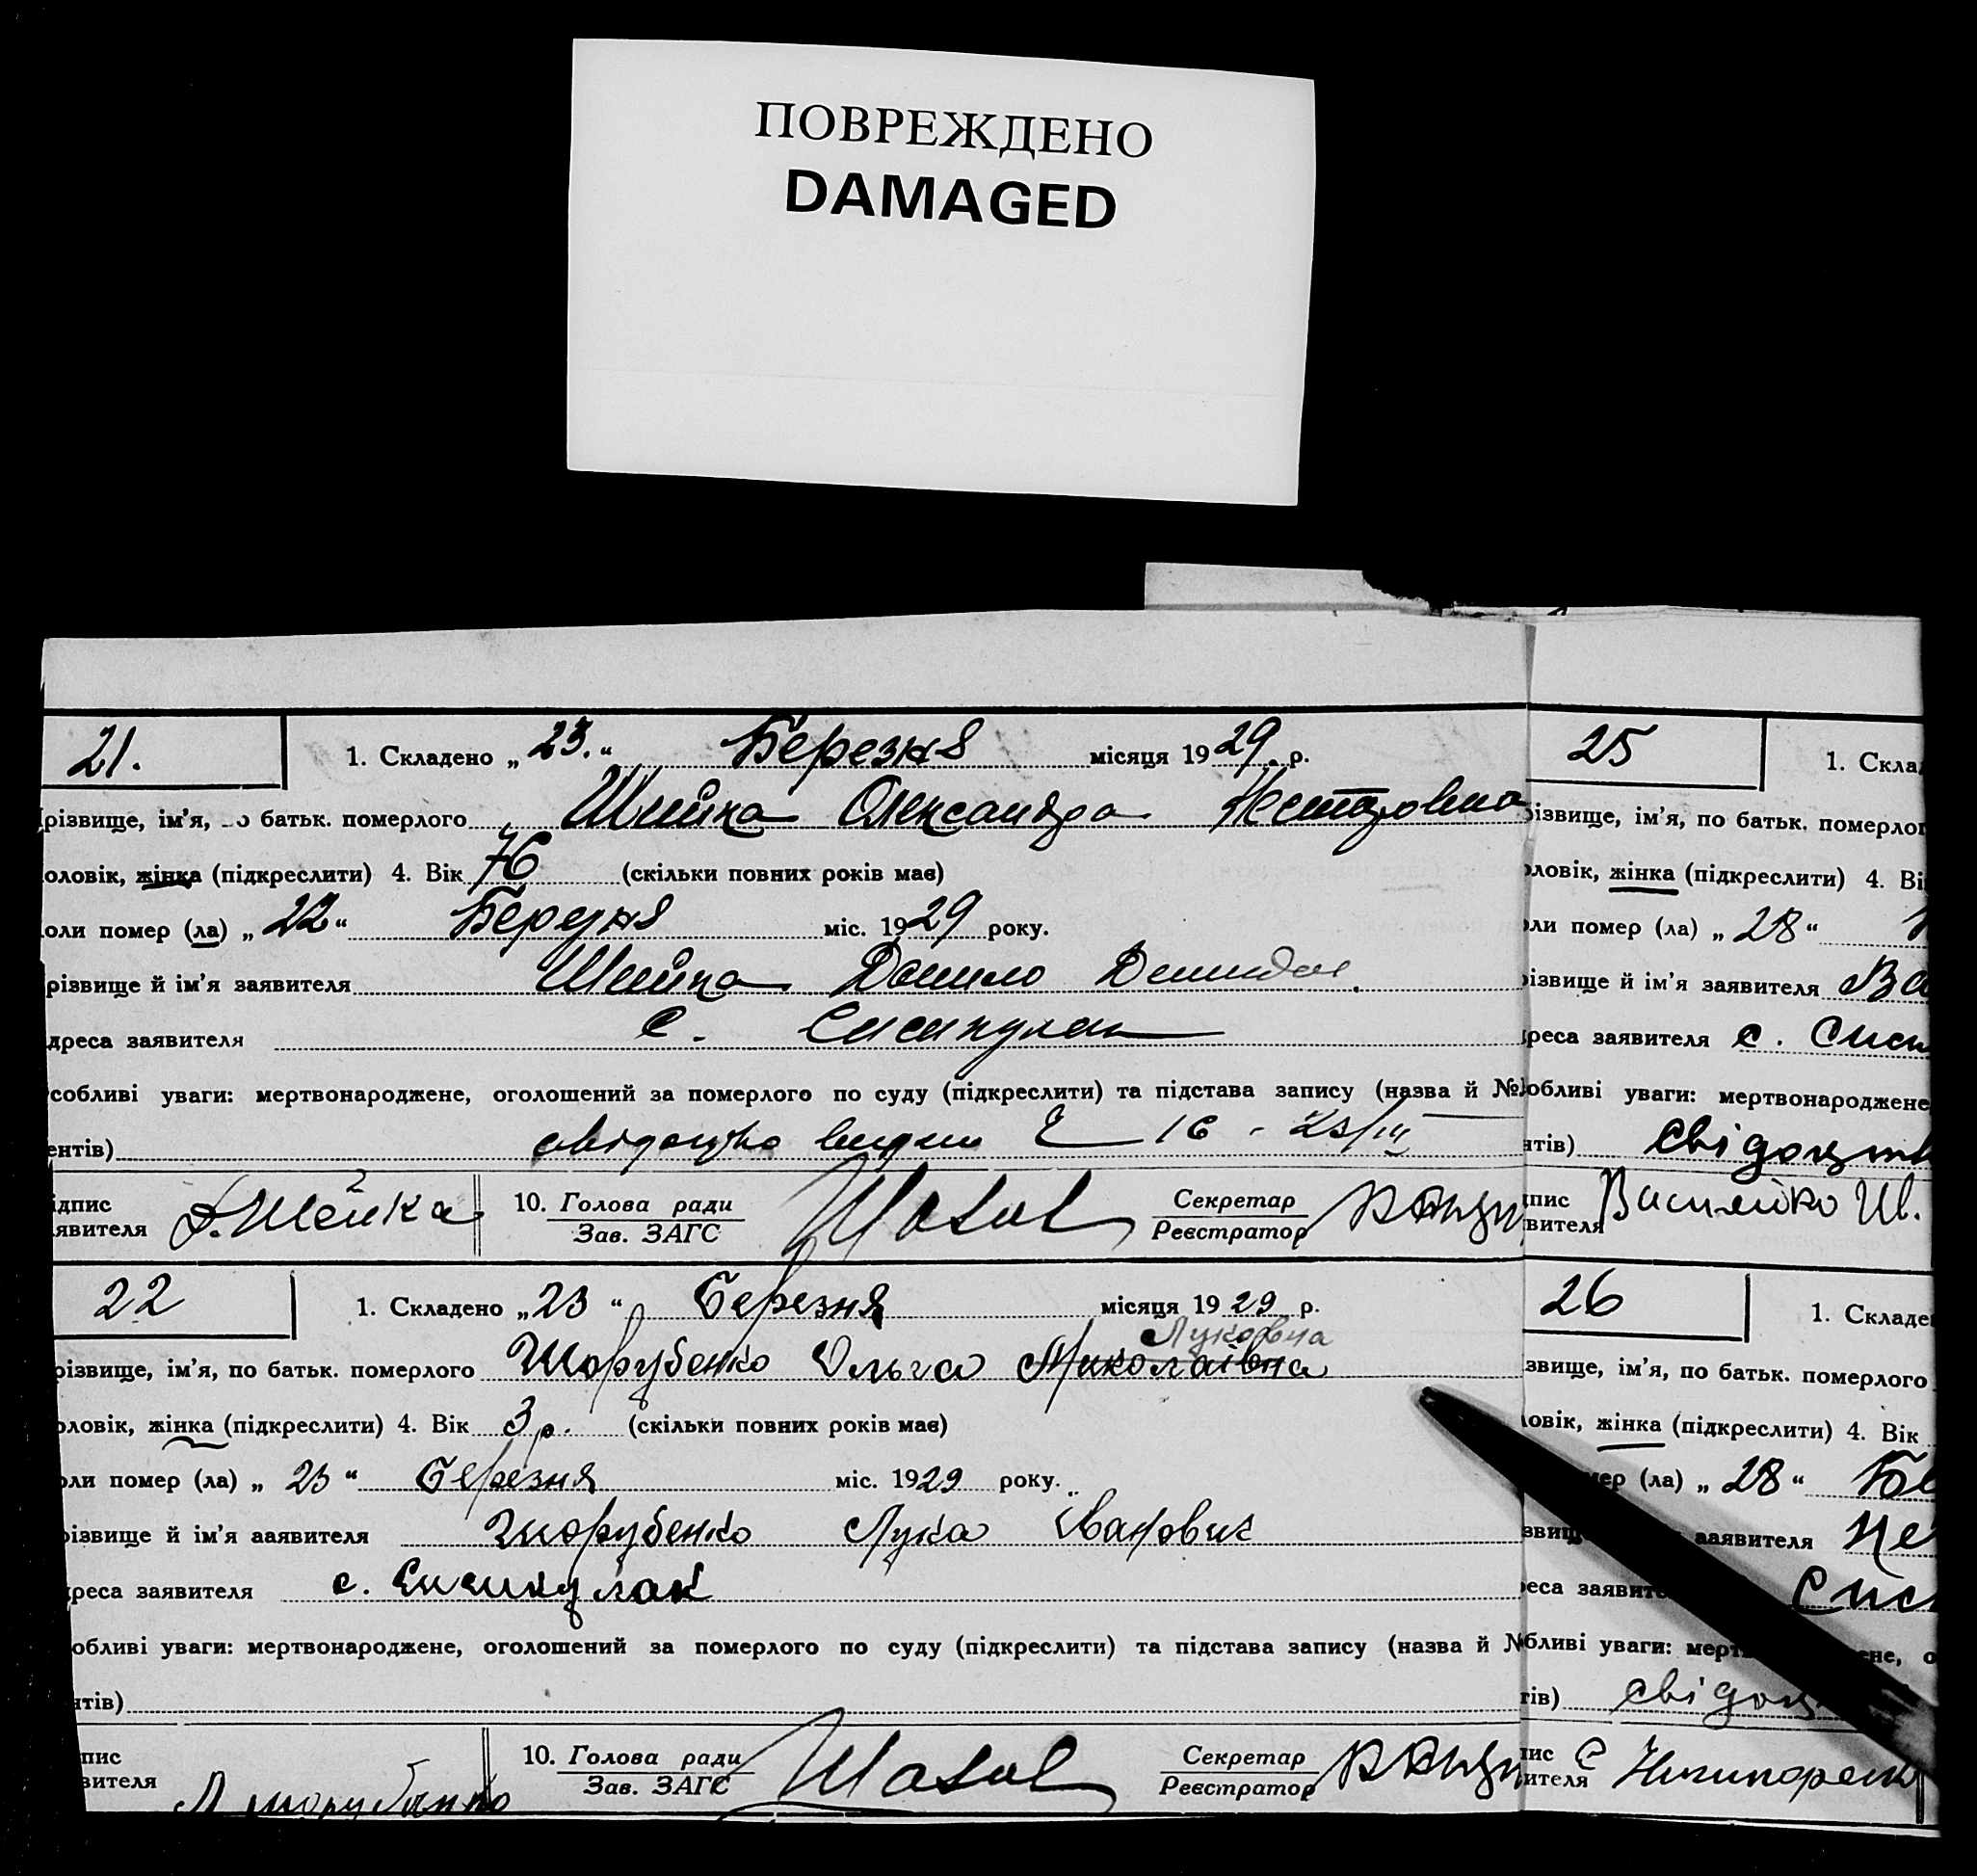 ПОВРЕЖДЕНО
DAMAGED
21.
1. Складено „ 23. “ Березня місяця 1929 р.
різвище, ім'я, по батьк. померлого Шийка Олександра
оловік, жінка (підкреслити) 4. Вік 76 (скільки повних років має)
оли помер (ла) „ 22 “ Березня міс. 1929 року.
різвище й ім'я заявителя Шийка Данило
дреса заявителя с.
собливі уваги: мертвонароджене, оголошений за померлого по суду (підкреслити) та підстава запису (назва й №
ентів) 16 - 23/III
ідпис
аявителя Д. Шейка
10. Голова ради
Зав. ЗАГС
Секретар
Реєстратор
22
1. Складено „ 23 “ Березня місяця 1929 р.
Луковна
різвище, ім'я, по батьк. померлого Шорубенко Ольга Миколаївна
оловік, жінка (підкреслити) 4. Вік 3 р. (скільки повних років має)
оли помер (ла) „ 23 “ Березня міс. 1929 року.
різвище й ім'я заявителя Шорубенко Лука Іванович
дреса заявителя с.
обливі уваги: мертвонароджене, оголошений за померлого по суду (підкреслити) та підстава запису (назва й №
нтів)
пис
вителя
10. Голова ради
Зав. ЗАГС
Секретар
Реєстратор
25
1. Склад
різвище, ім'я, по батьк. померлог
оловік, жінка (підкреслити) 4. Ві
оли помер (ла) „ 28 “
різвище й ім'я заявителя Ва
реса заявителя с. Сиси
обливі уваги: мертвонароджене
нтів) свідоцтв
пис
вителя Василейко Ів.
26
1. Складе
звище, ім'я, по батьк. померлого
овік, жінка (підкреслити) 4. Вік
мер (ла) „ 28 “ Бе
звищ заявителя Не
реса заявите Сис
бливі уваги: мерт ене, о
тів) свідоц
ис
ителя